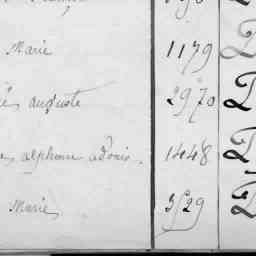 Marie 1179 D
auguste 2970 D
alphonse adonis. 1448 D
Marie 3529 D